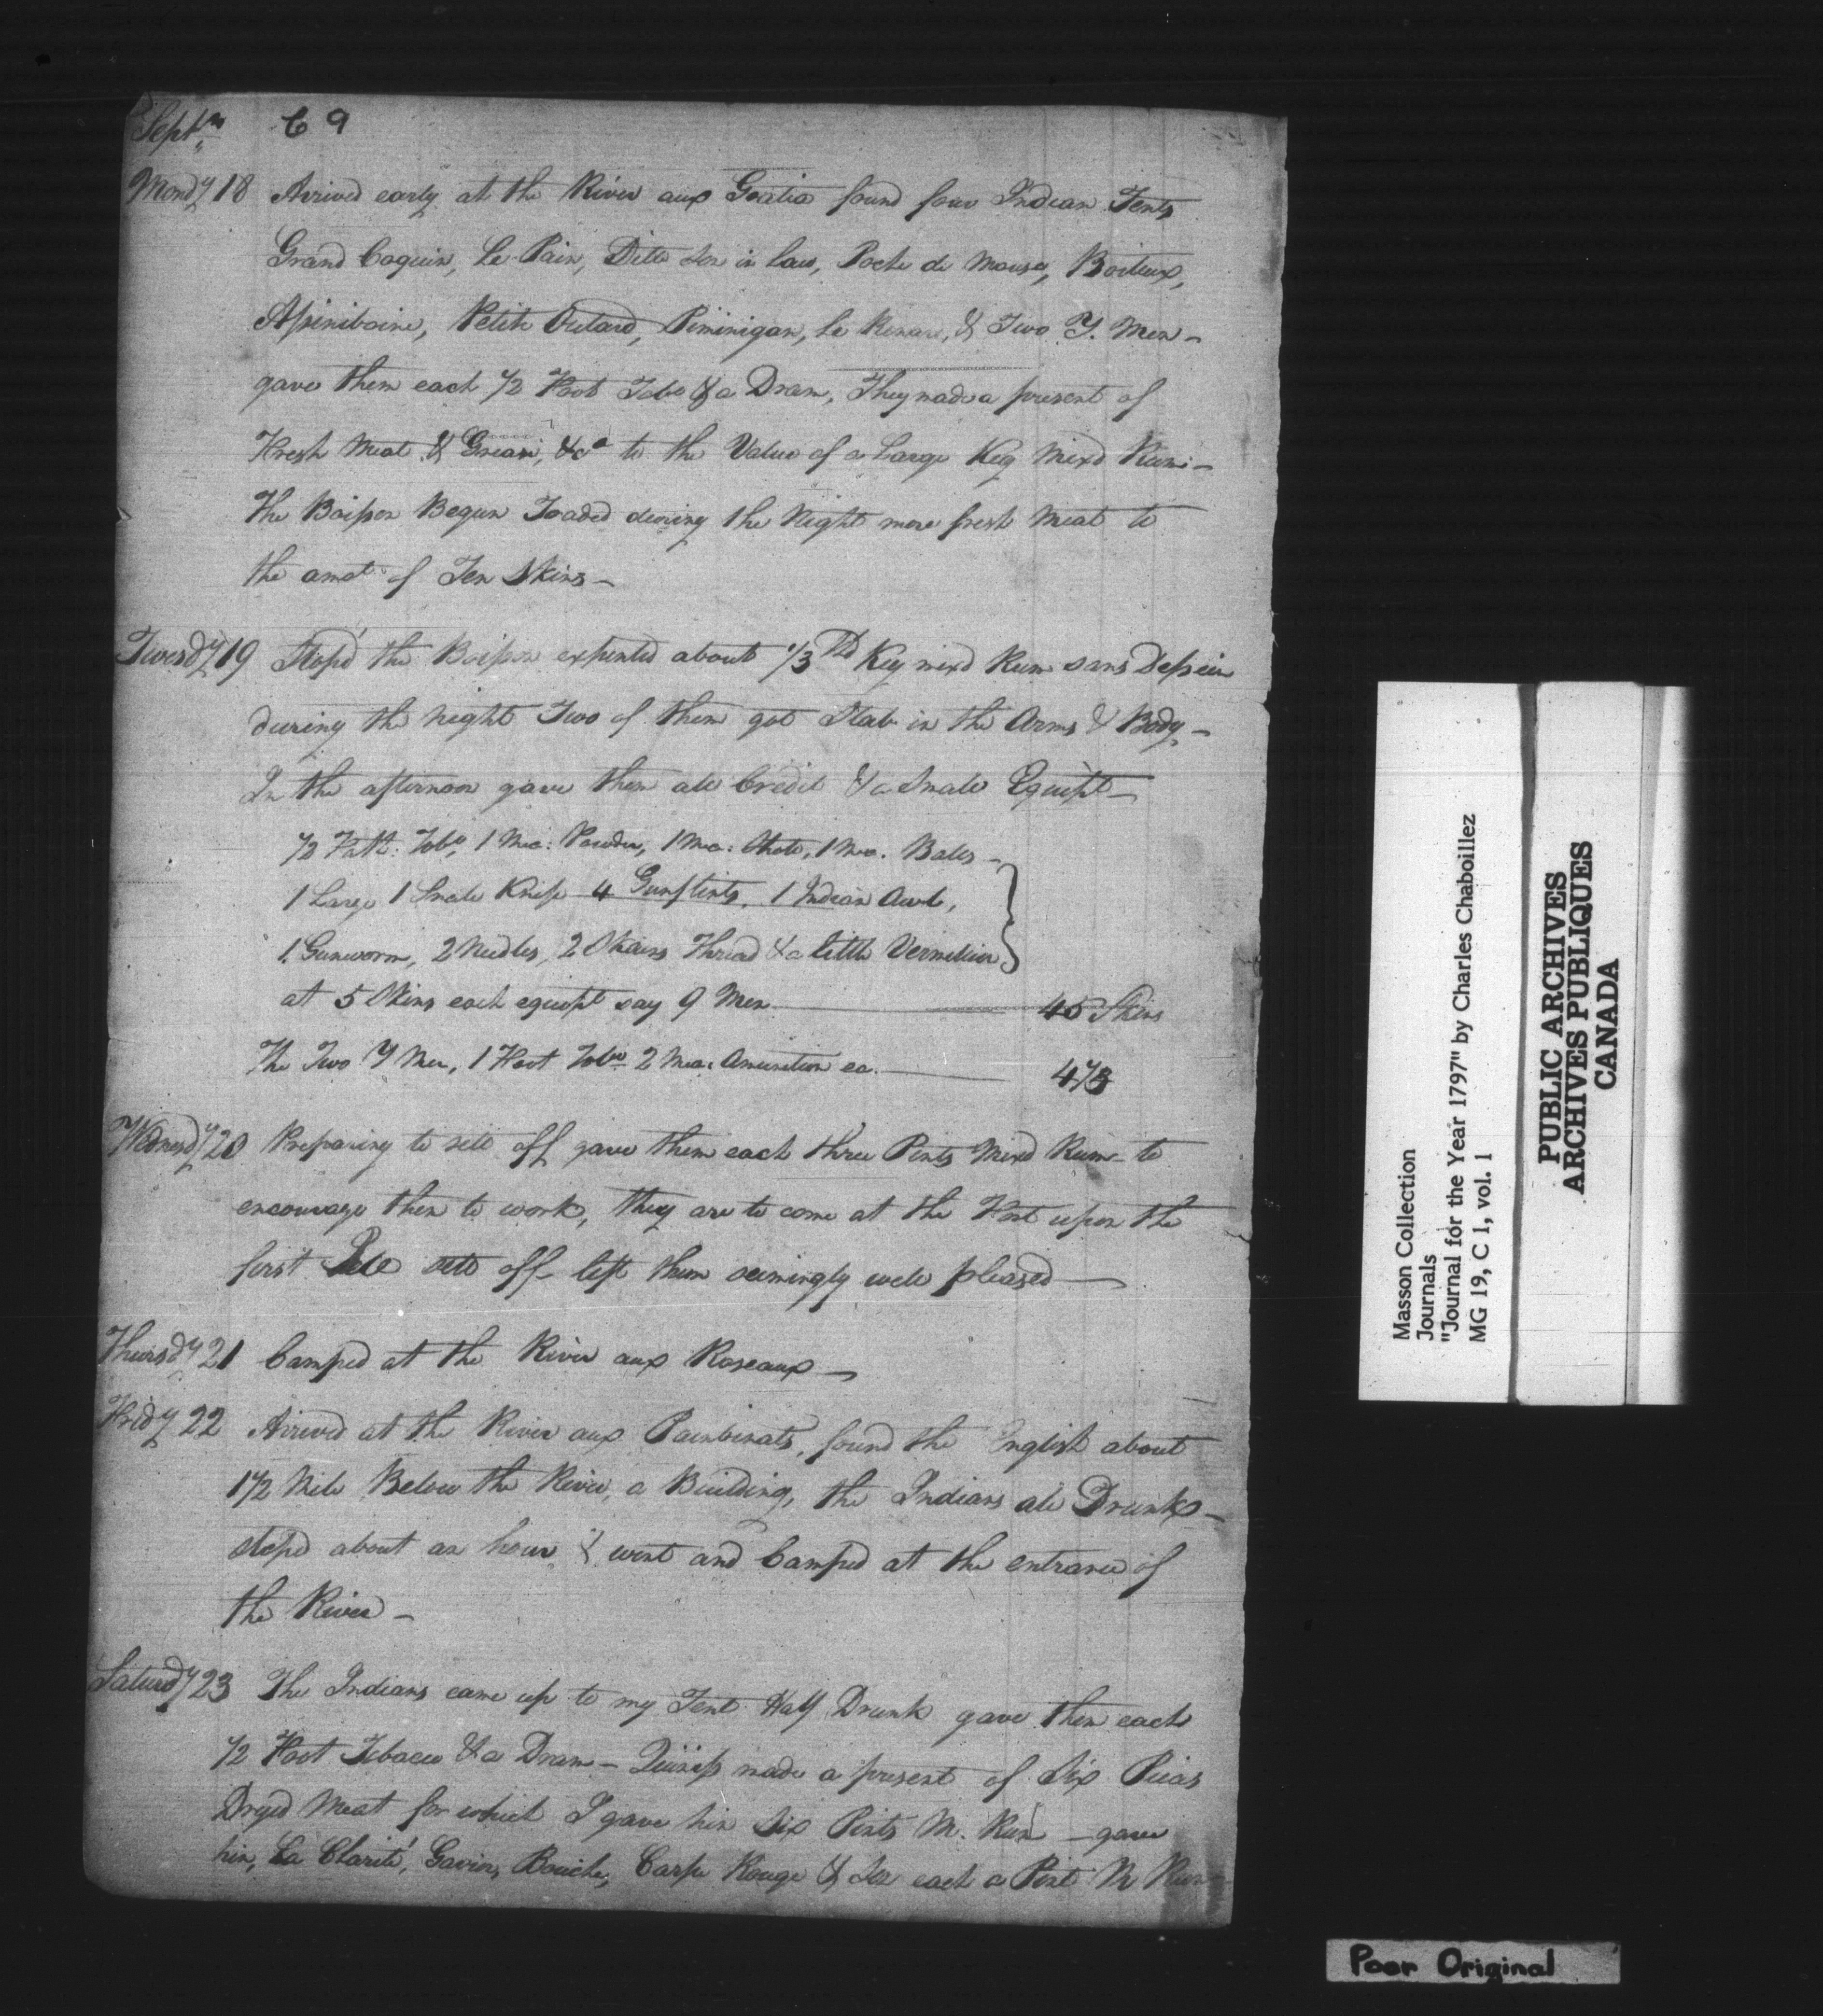 Septr 69
Mondy 18 Arrived early at the River aux Gratia found four Indian Tents
Grand Coquin, Le Pain, Ditto Son in law, Poche de Mouse, Boiteux,
Assiniboine, Petite Outard, Piminigan, Le Renard, & Two Y. Men -
gave them each 1/2 Foot Tobo & a Dram, They made a present of
Fresh Meat & Grease, &ca to the Value of a Large Keg Mixd Rum -
The Boisson Begun Traded during the Night more fresh Meat to
the amot of Ten Skins -
Tuesdy 19 Stop'd the Boisson expended about 1/3rd Keg mixd Rum sans Dessein
during the Night Two of them got Stab in the Arms & Body -
In the afternoon gave them all Credit & a Small Equipt -
1/2 Fath: Tobo, 1 Mea: Powder, 1 Mea: Shott, 1 Mea. Balls -
1 Large 1 Small Knife 4 Gunflints, 1 Indian Awl,
1 Gunworm, 2 Needles, 2 Skains Thread & a little Vermilion
at 5 Skins each equipt say 9 Men 45 Skins
The Two Y Men, 1 Foot Tobo 2 Mea: Amunition ea.
Wednesdy 20 Preparing to sett off gave them each three Pints Mixd Rum to
encourage them to work, they are to come at the Fort upon the
first sett off left them seemingly well pleased -
Thursdy 21 Camped at the River aux Roseaux -
Fridy 22 Arrived at the River aux Painbinats, found the English about
1 1/2 Mile Below the River, a Building, the Indians all Drunk -
stoped about an hour & went and Camped at the entrance of
the River -
Saturdy 23 The Indians came up to my Tent Half Drunk gave them each
1/2 Foot Tobacco & a Dram - made a present of Six Picas
Dryed Meat for which I gave him Six Pints M. Rum - gave
him, La Clarité, Gavin, Bouche, Carpe Rouge & Son each a Pint M Rum
Masson Collection
Journals
"Journal for the Year 1797" by Charles Chaboillez
MG 19, C 1, vol. 1
PUBLIC ARCHIVES
ARCHIVES PUBLIQUES
CANADA
Poor Original